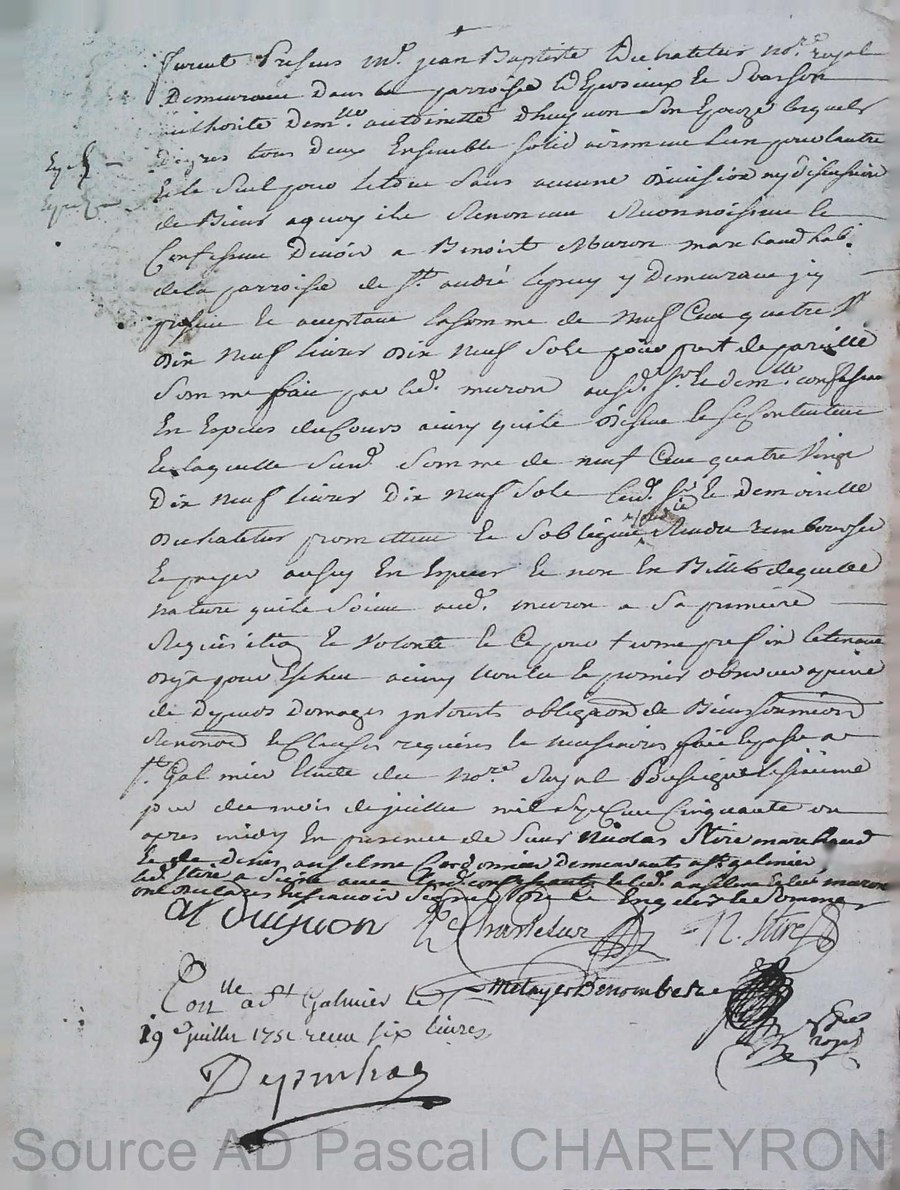 furent Presens Mr. jean Baptiste Duchatelus nore. royal
Demeurant Dans la parroisse
authorité Demlle antoinette dhuguon Son Epouze lesquels
Degres tous deux Ensemble solidairement Lun pour lautre
Et le Seul pour letout Sans aucune Division ny discussion
de Biens aquoy ils Renoncent Reconnoissent Et
Confessent Devoir a Benoist Muron marchand hab.
dela parroisse de St. andré lepuy y Demeurant jcy
present Et aceptant lasomme de neuf Cent quatre Vt
Dix neuf livres Dix neuf Sols pour pret de pareille
Somme fait par led. muron ausd. Sr. Et demlle. confessant
En Especes du Cours ainsy quils Disent Et se Contentent
Et laquelle Susd. Somme de neuf Cent quatre Vingt
Dix neuf livres Dix neuf Sols Lesd. Sr. Et Demoiselle
Duchatelus promettent Et Sobligent Rendre rembourser
Et payer aussy En Especes Et non En Billets dequelle
nature quils Soient aud. muron a Sa premiere
Requisition Et Volonté Et Ce pour terme prefix Et tenant
deja pour Escheu ainsy Voulu Et promis observer apeine
de Depens Domages jnterests obligaon de Biens
Renonon Et Clauses requises Et necessaires fait Et passé a
St. Galmier Etude du Nore. Royal Soussigné
jour du mois de juillet mil Sept Cent Cinquante un
apres midy En presence de Sieur Nicolas Stire marchand
Et de Denis anselme Cordonnier Demeurants a St galmier
led. Stire a Signé avec lesd. confessants Et led. anselme Et led. muron
ont declarés ne scavoir Signer de ce Enquis Et Sommes
Duchatelus N. Stire
Conlle a St Galmier le
19e juillet 1751 receu six livres
nore
royal
Source AD Pascal CHAREYRON